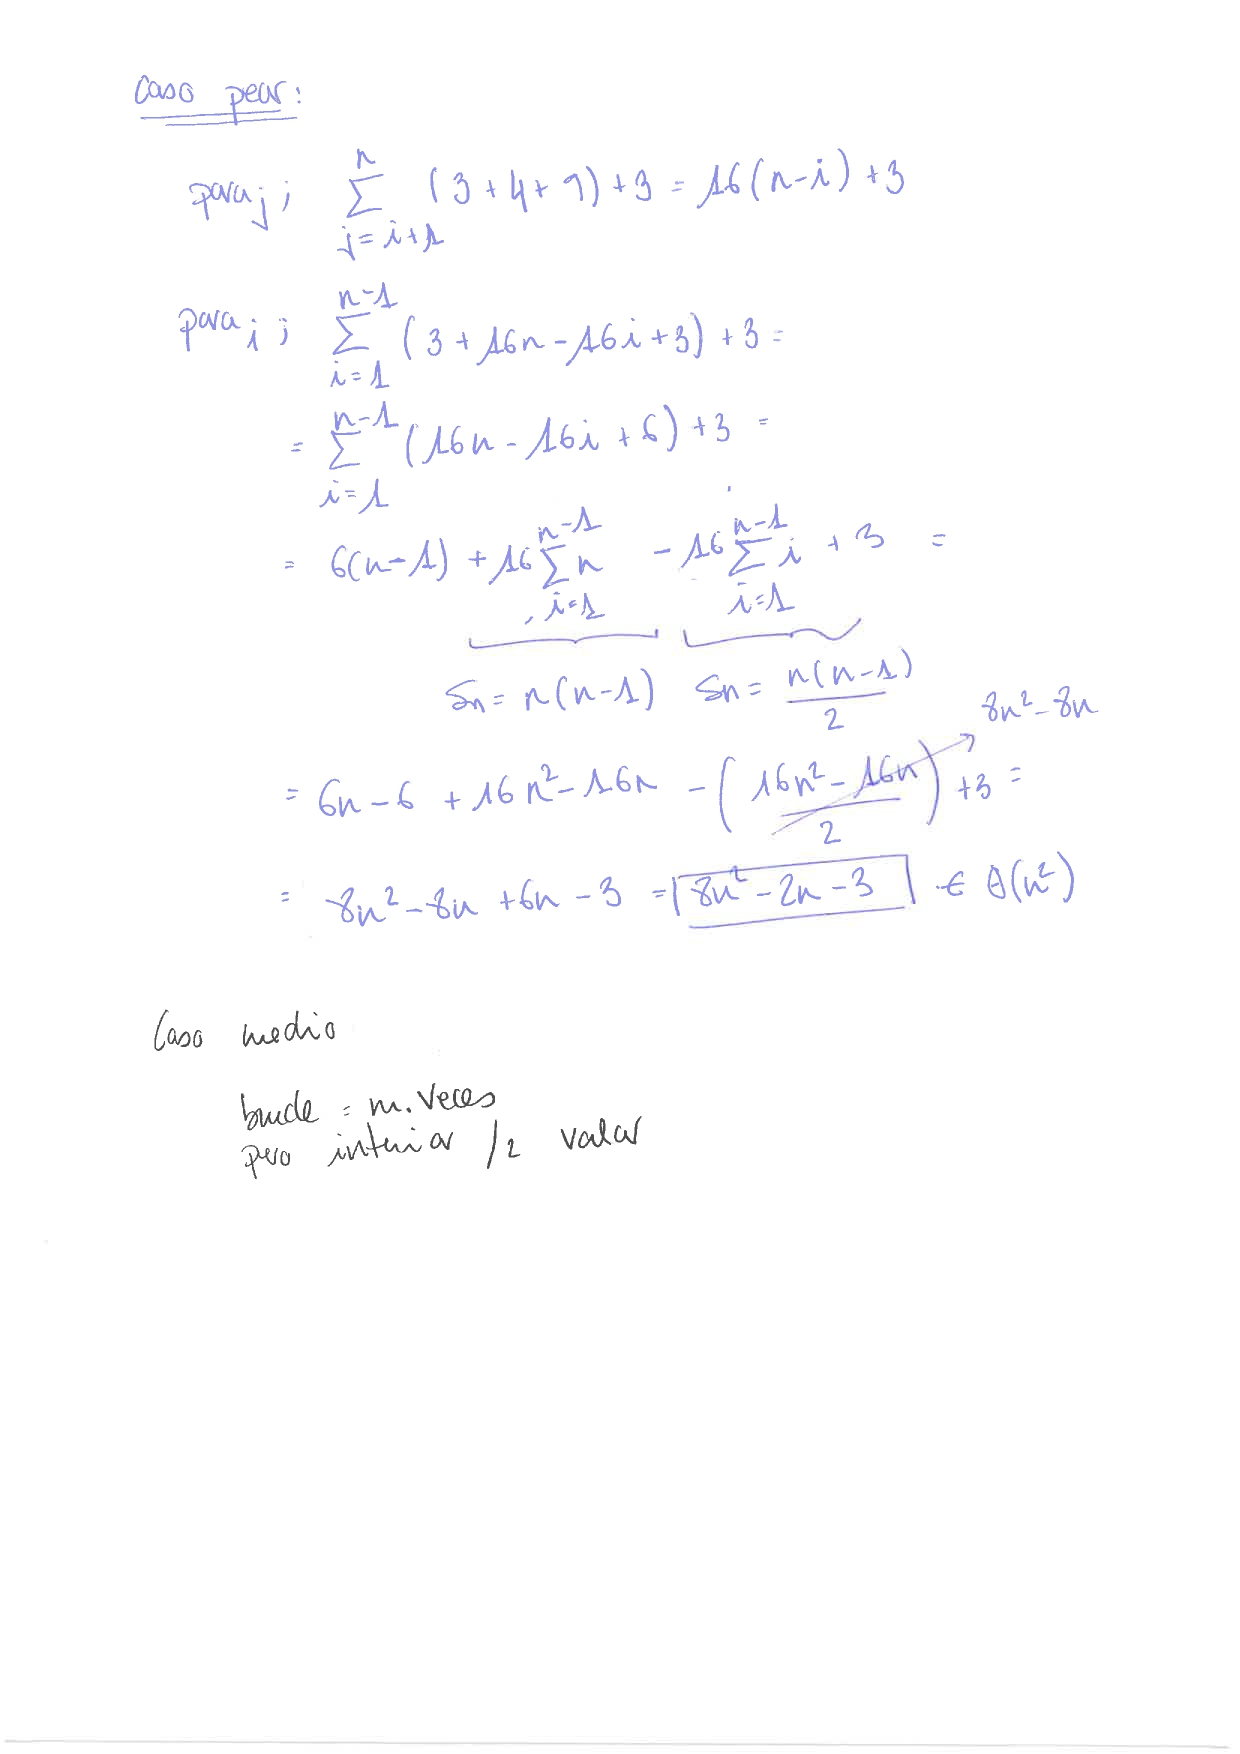 Caso peor:
para j; ∑_{j=i+1}^{n} (3+4+9)+3 = 16(n-i)+3
para i; ∑_{i=1}^{n-1} (3+16n-16i+3)+3 =
= ∑_{i=1}^{n-1} (16n-16i+6)+3 =
= 6(n-1) + 16 ∑_{i=1}^{n-1} n - 16 ∑_{i=1}^{n-1} i + 3 =
Sn = n(n-1) Sn = n(n-1)/2
8n²-8n
= 6n-6 + 16n²-16n - (16n²-16n/2) +3 =
= 8n²-8n+6n-3 = 8n²-2n-3 ∈ θ(n²)
Caso medio
bucle = m. veces
pero interior /2 valor